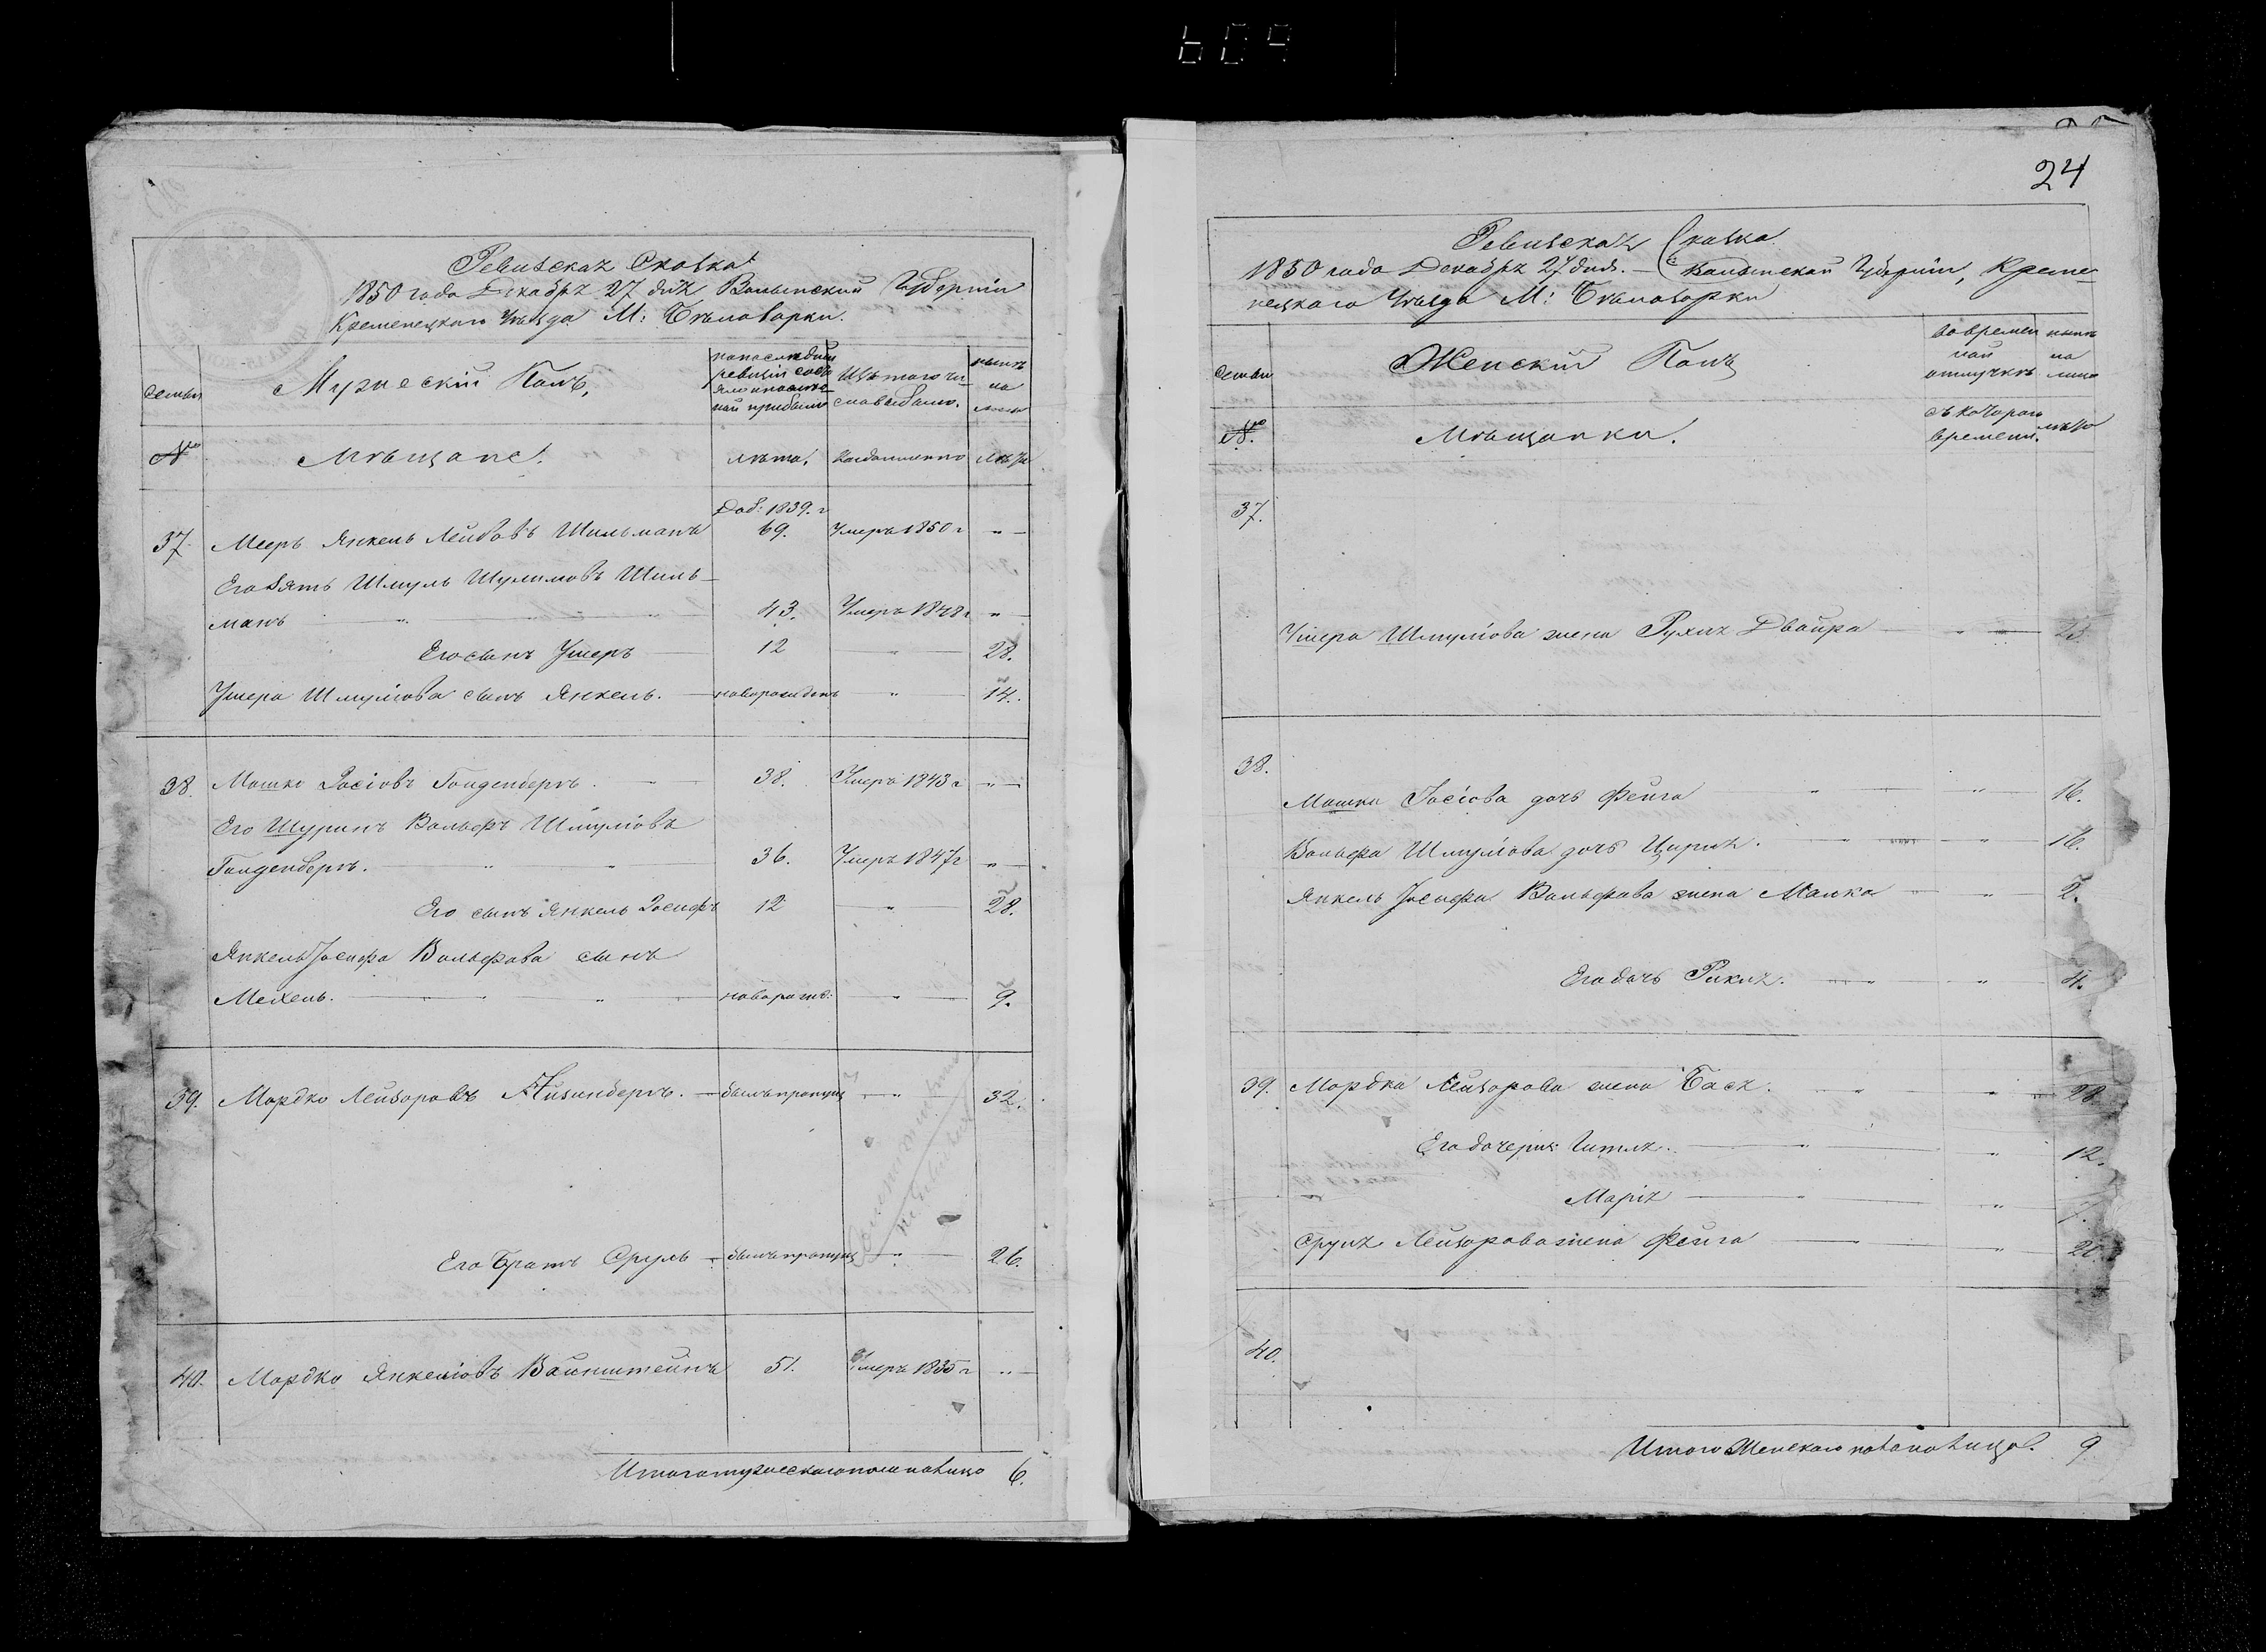 609
Ревизская Сказка
1850 года Декабря 27 дня Волынской Губерніи
Кременецкаго Уѣзда М: Бѣлозорки.
Семьи
Мужескій Полъ,
по последней
ревизіи состо
яло и после
той прибыло
Изъ того чи-
сла выбыло.
нынѣ
на
лицо
№
Мѣщане.
лѣта.
Когда именно
лѣта
37.
Доб: 1839. г
Мееръ Янкель Лейбовъ Шильманъ 69. Умеръ 1850 г " —
Его Зять Шмуль Шулимовъ Шиль-
манъ 43. Умеръ 1848 г "
Его сынъ Ушеръ 12 " 28.
Ушера Шмуліова сынъ Янкель. новорожденъ " 14.
38. Мошко Іосіовъ Гольденбергъ. 38. Умеръ 1843 г " —
Его Шуринъ Вольфъ Шмуліовъ
Гольденбергъ. 36. Умеръ 1847 г "
Его сынъ Янкель Іосифъ 12 " 28.
Янкель Іосифа Вольфова сынъ
Мехель. новорожд: " 9.
39. Мордко Лейзоровъ былъ пропущ " 32.
Его Братъ Сруль былъ пропущ " 26.
40. Мордко Янкеліовъ Вайнштейнъ 51. Умеръ 1835 г " —
Итого мужескаго пола на лицо 6.
24
Ревизская Сказка
1850 года Декабря 27 дня. — Волынской Губерніи, Креме-
нецкаго Уѣзда М: Бѣлозорки
Семьи
Женскій Полъ
во времен
ной
отлучкѣ
нынѣ
на
лицо
№
Мѣщанки.
съ котораго
времени.
лѣта
37.
Ушера Шмуліова жена Рухля Двойра "
38.
Мошки Іосіова дочь Фейга " " 16.
Вольфа Шмуліова дочь Ципря. " " 16.
Янкель Іосифа Вольфова жена Малка " "
Его дочь Рикля. " " 4.
39. Мордка Лейзорова жена Бася. " " 28
Его дочери: Гитля. " " 12.
" Марія " "
Сруля Лейзорова жена Фейга " " 20
40.
Итого Женскаго пола на лицо. 9